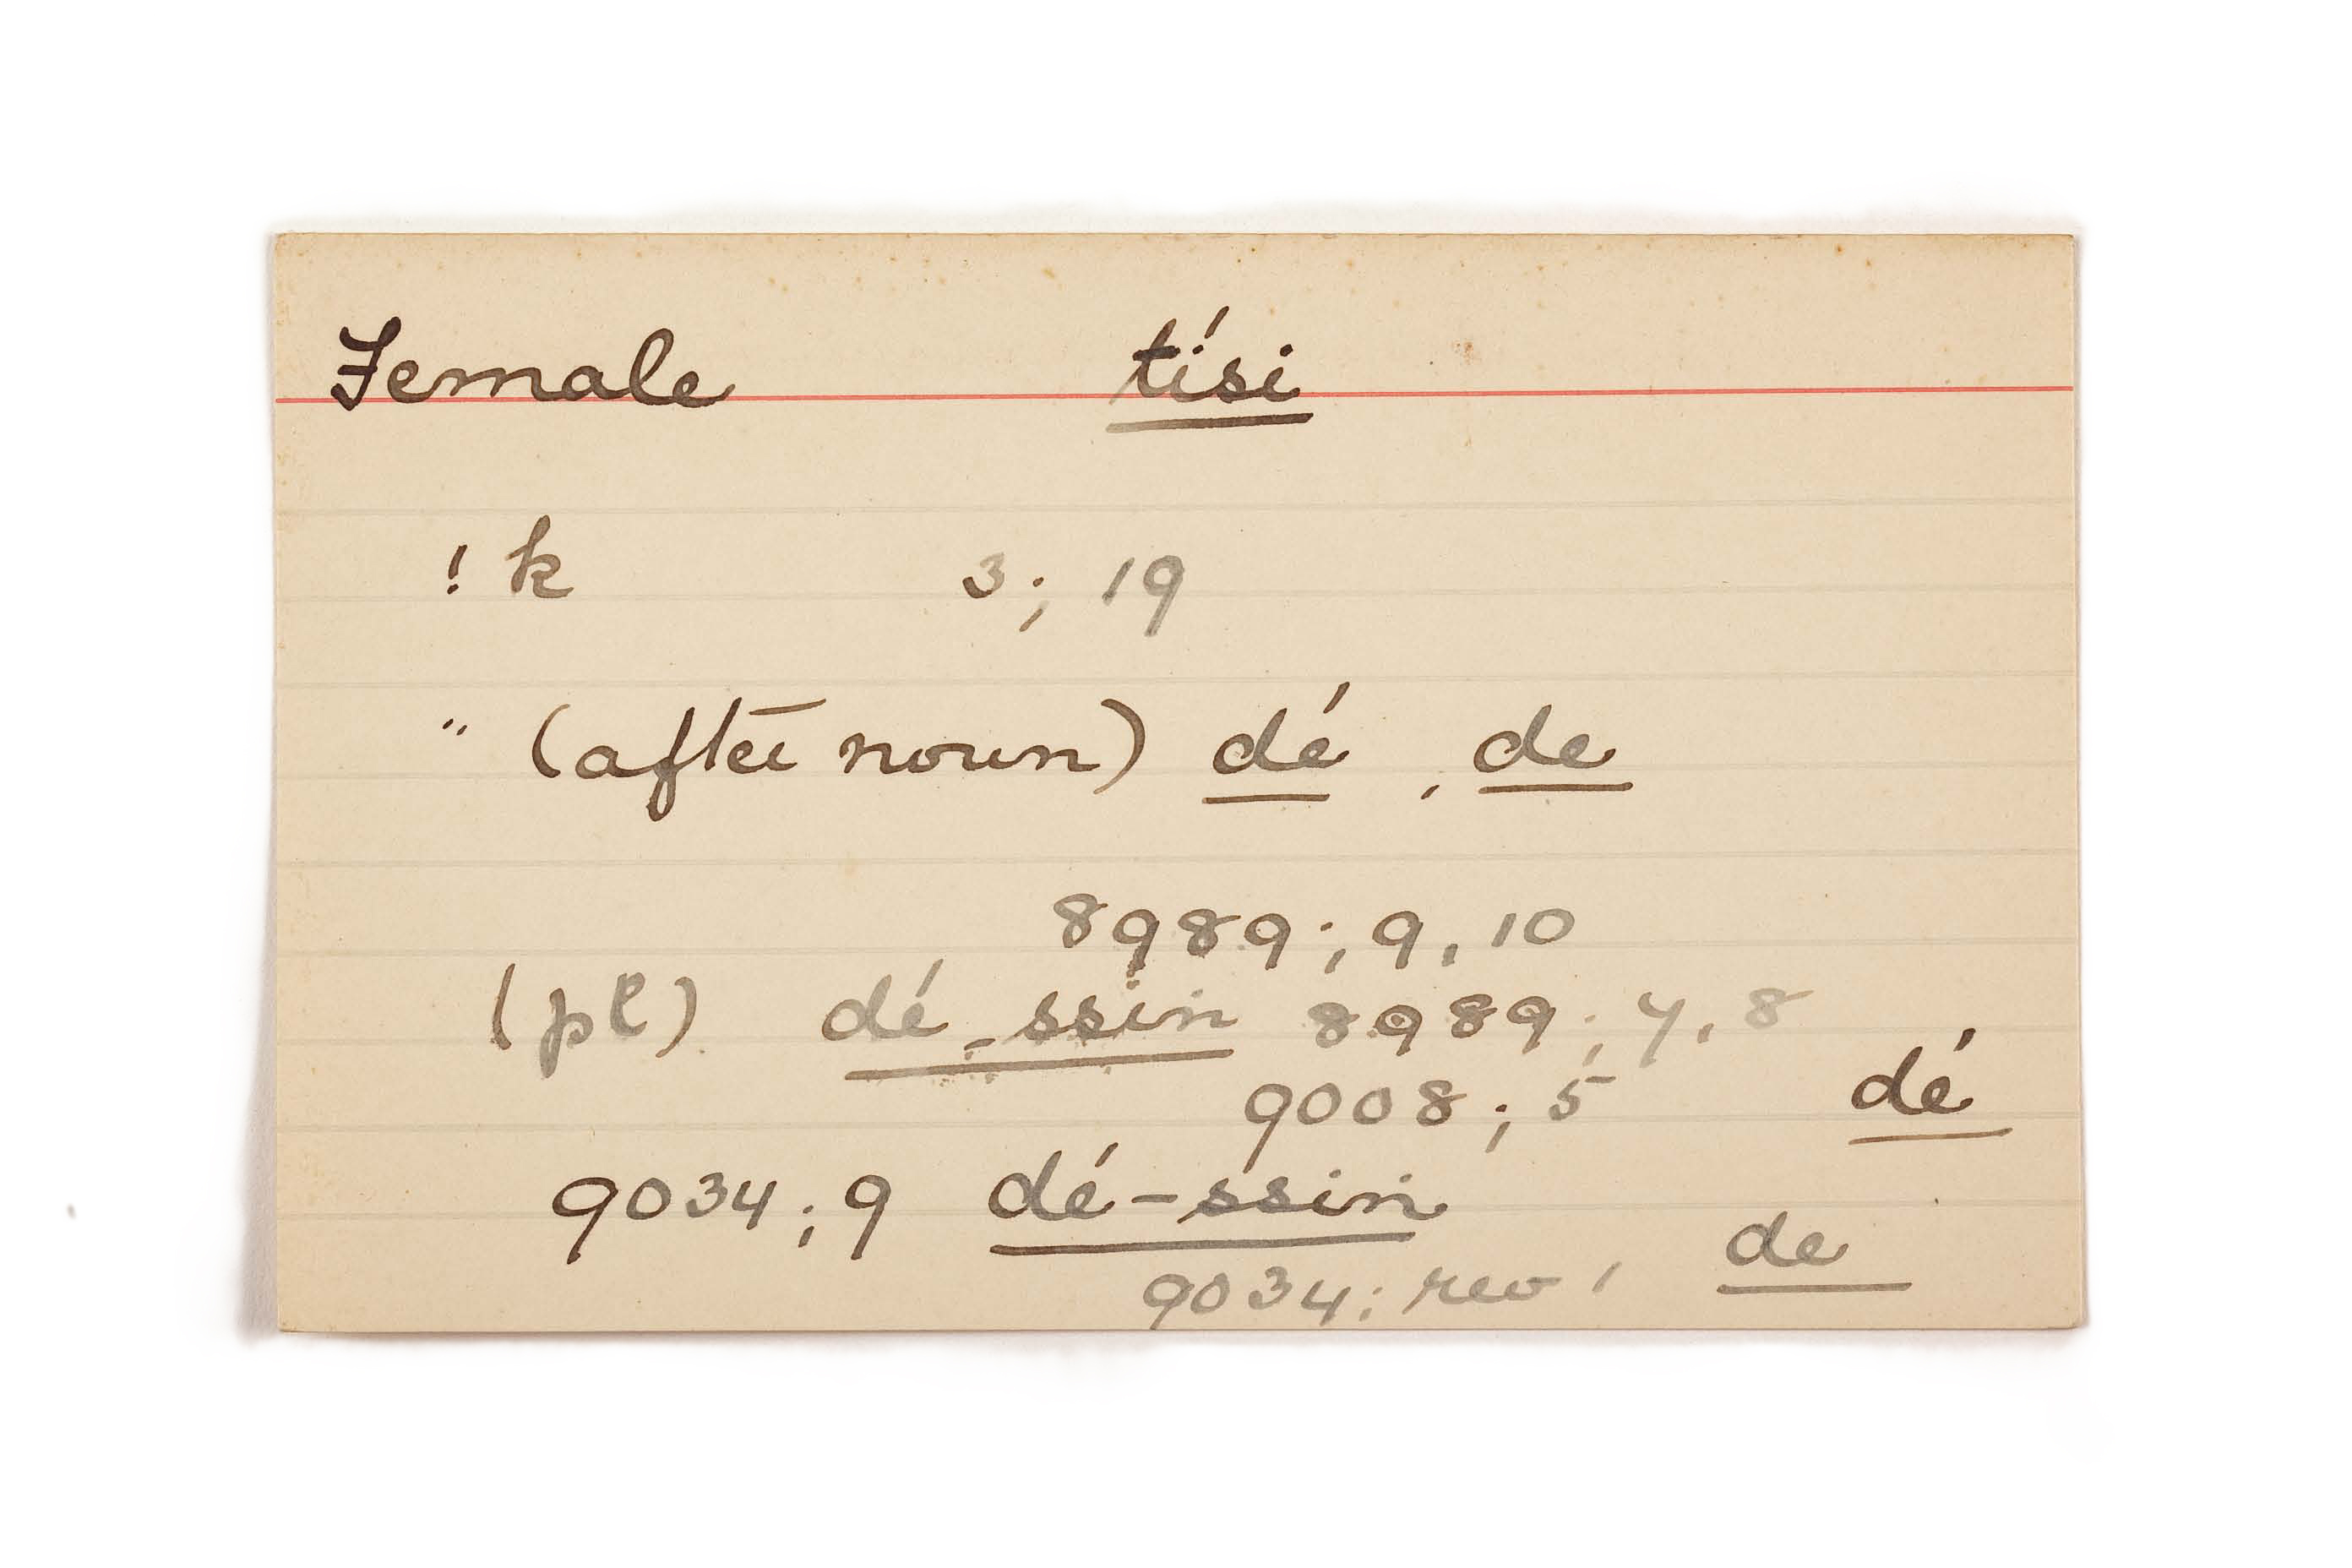 Female tísi
!k 3; 19
" (after noun) dé, de
8989; 9, 10
(pl) dé-ssin 8989; 7, 8
9008; 5 dé
9034; 9 dé-ssin
9034: rev, de